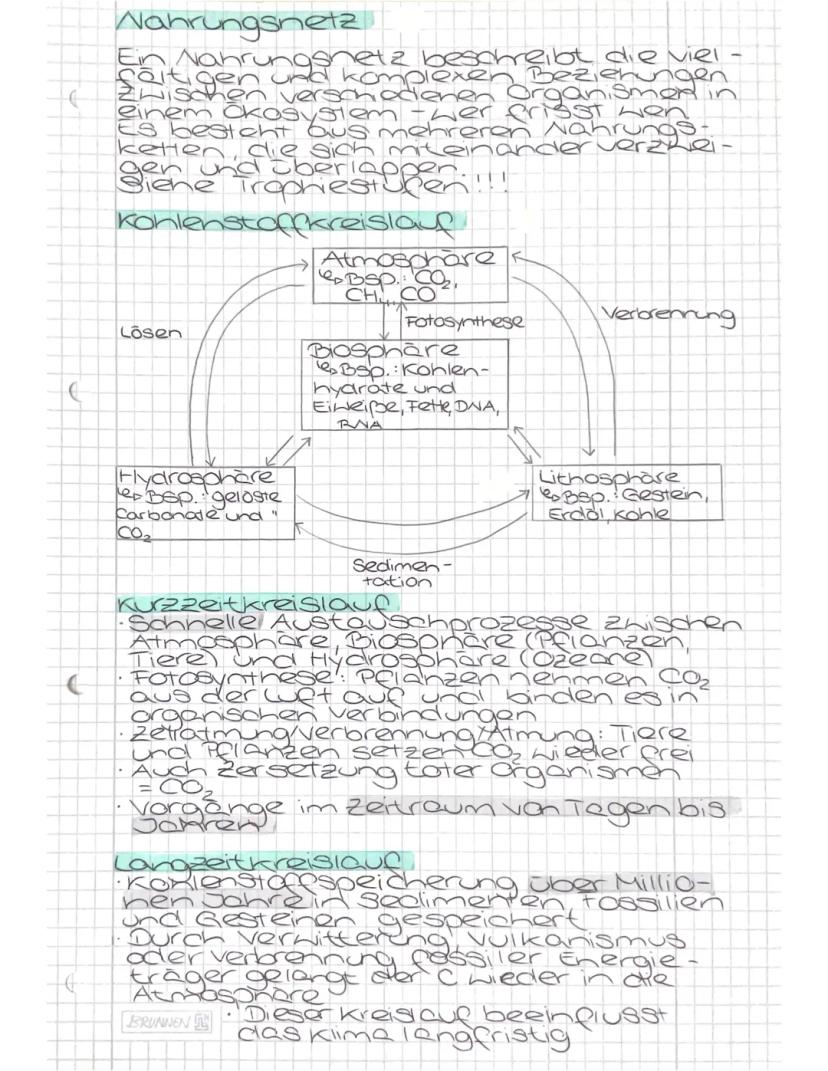 Nahrungsnetz
Ein Nahrungsnetz beschreibt die viel-
fältigen und komplexen Beziehungen
zwischen verschiedenen Organismen in
einem Ökosystem - wer frisst wen
Es besteht aus mehreren Nahrungs-
ketten, die sich miteinander verzwei-
gen und überlappen.
Siehe Trophiestufen!!!
Kohlenstoffkreislauf
Atmosphäre
↳ Bsp.: CO₂,
CH₄, CO
Lösen
Fotosynthese
Verbrennung
Biosphäre
↳ Bsp.: Kohlen-
hydrate und
Eiweiße, Fette, DNA,
RNA
Hydrosphäre
↳ Bsp.: gelöste
Carbonate und "
CO₂
Lithosphäre
↳ Bsp.: Gestein,
Erdöl, Kohle
Sedimen-
tation
Kurzzeitkreislauf
· Schnelle Austauschprozesse zwischen
Atmosphäre, Biosphäre (Pflanzen,
Tiere) und Hydrosphäre (Ozeane)
· Fotosynthese: Pflanzen nehmen CO₂
aus der Luft auf und binden es in
organischen Verbindungen
· Zellatmung/Verbrennung/Atmung: Tiere
und Pflanzen setzen CO₂ wieder frei
· Auch Zersetzung toter Organismen
= CO₂
· Vorgänge im Zeitraum von Tagen bis
Jahren
Langzeitkreislauf
· Kohlenstoffspeicherung über Millio-
nen Jahre in Sedimenten, Fossilien
und Gesteinen gespeichert
· Durch Verwitterung, Vulkanismus
oder Verbrennung fossiler Energie-
träger gelangt der C wieder in die
Atmosphäre
· Dieser Kreislauf beeinflusst
das Klima langfristig
BRUNNEN